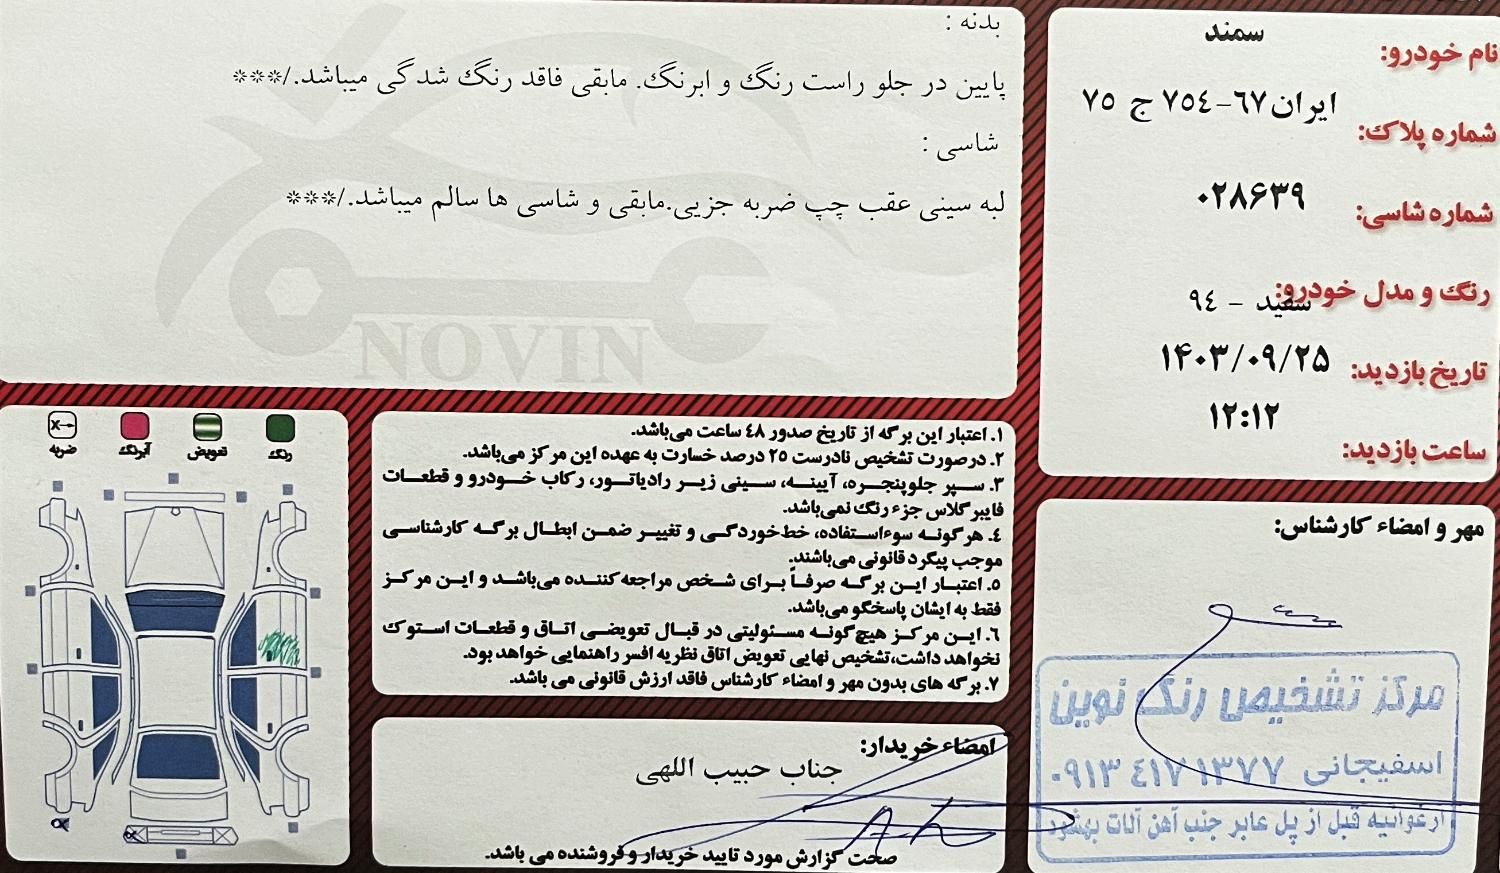 نام خودرو: سمند
شماره پلاک: ایران ٦٧-٧٥٤ ج ٧٥
شماره شاسی: ۰۲۸۶۳۹
رنگ و مدل خودرو: سفید - ٩٤
تاریخ بازدید: ۱۴۰۳/۰۹/۲۵
ساعت بازدید: ۱۲:۱۲
بدنه :
پایین در جلو راست رنگ و ابرنگ. مابقی فاقد رنگ شدگی میباشد./***
شاسی :
لبه سینی عقب چپ ضربه جزیی.مابقی و شاسی ها سالم میباشد./***
NOVIN
رنگ
تعویض
آبرنگ
ضربه
X
۱. اعتبار این برگه از تاریخ صدور ٤٨ ساعت می‌باشد.
۲. درصورت تشخیص نادرست ۲۵ درصد خسارت به عهده این مرکز می‌باشد.
۳. سپر جلوپنجره، آیینه، سینی زیر رادیاتور، رکاب خودرو و قطعات
فایبرگلاس جزء رنگ نمی‌باشد.
٤. هرگونه سوءاستفاده، خط‌خوردگی و تغییر ضمن ابطال برگه کارشناسی
موجب پیگرد قانونی می‌باشند.
۵. اعتبار این برگه صرفاً برای شخص مراجعه‌کننده می‌باشد و این مرکز
فقط به ایشان پاسخگو می‌باشد.
۶. این مرکز هیچ‌گونه مسئولیتی در قبال تعویضی اتاق و قطعات استوک
نخواهد داشت،تشخیص نهایی تعویض اتاق نظریه افسر راهنمایی خواهد بود.
۷. برگه های بدون مهر و امضاء کارشناس فاقد ارزش قانونی می باشد.
امضاء خریدار:
جناب حبیب اللهی
صحت گزارش مورد تایید خریدار و فروشنده می باشد.
مهر و امضاء کارشناس:
مرکز تشخیص رنگ نوین
اسفیجانی ۰۹۱۳ ٤۱۷ ۱۳۷۷
ارغوانیه قبل از پل عابر جنب آهن آلات بهشود